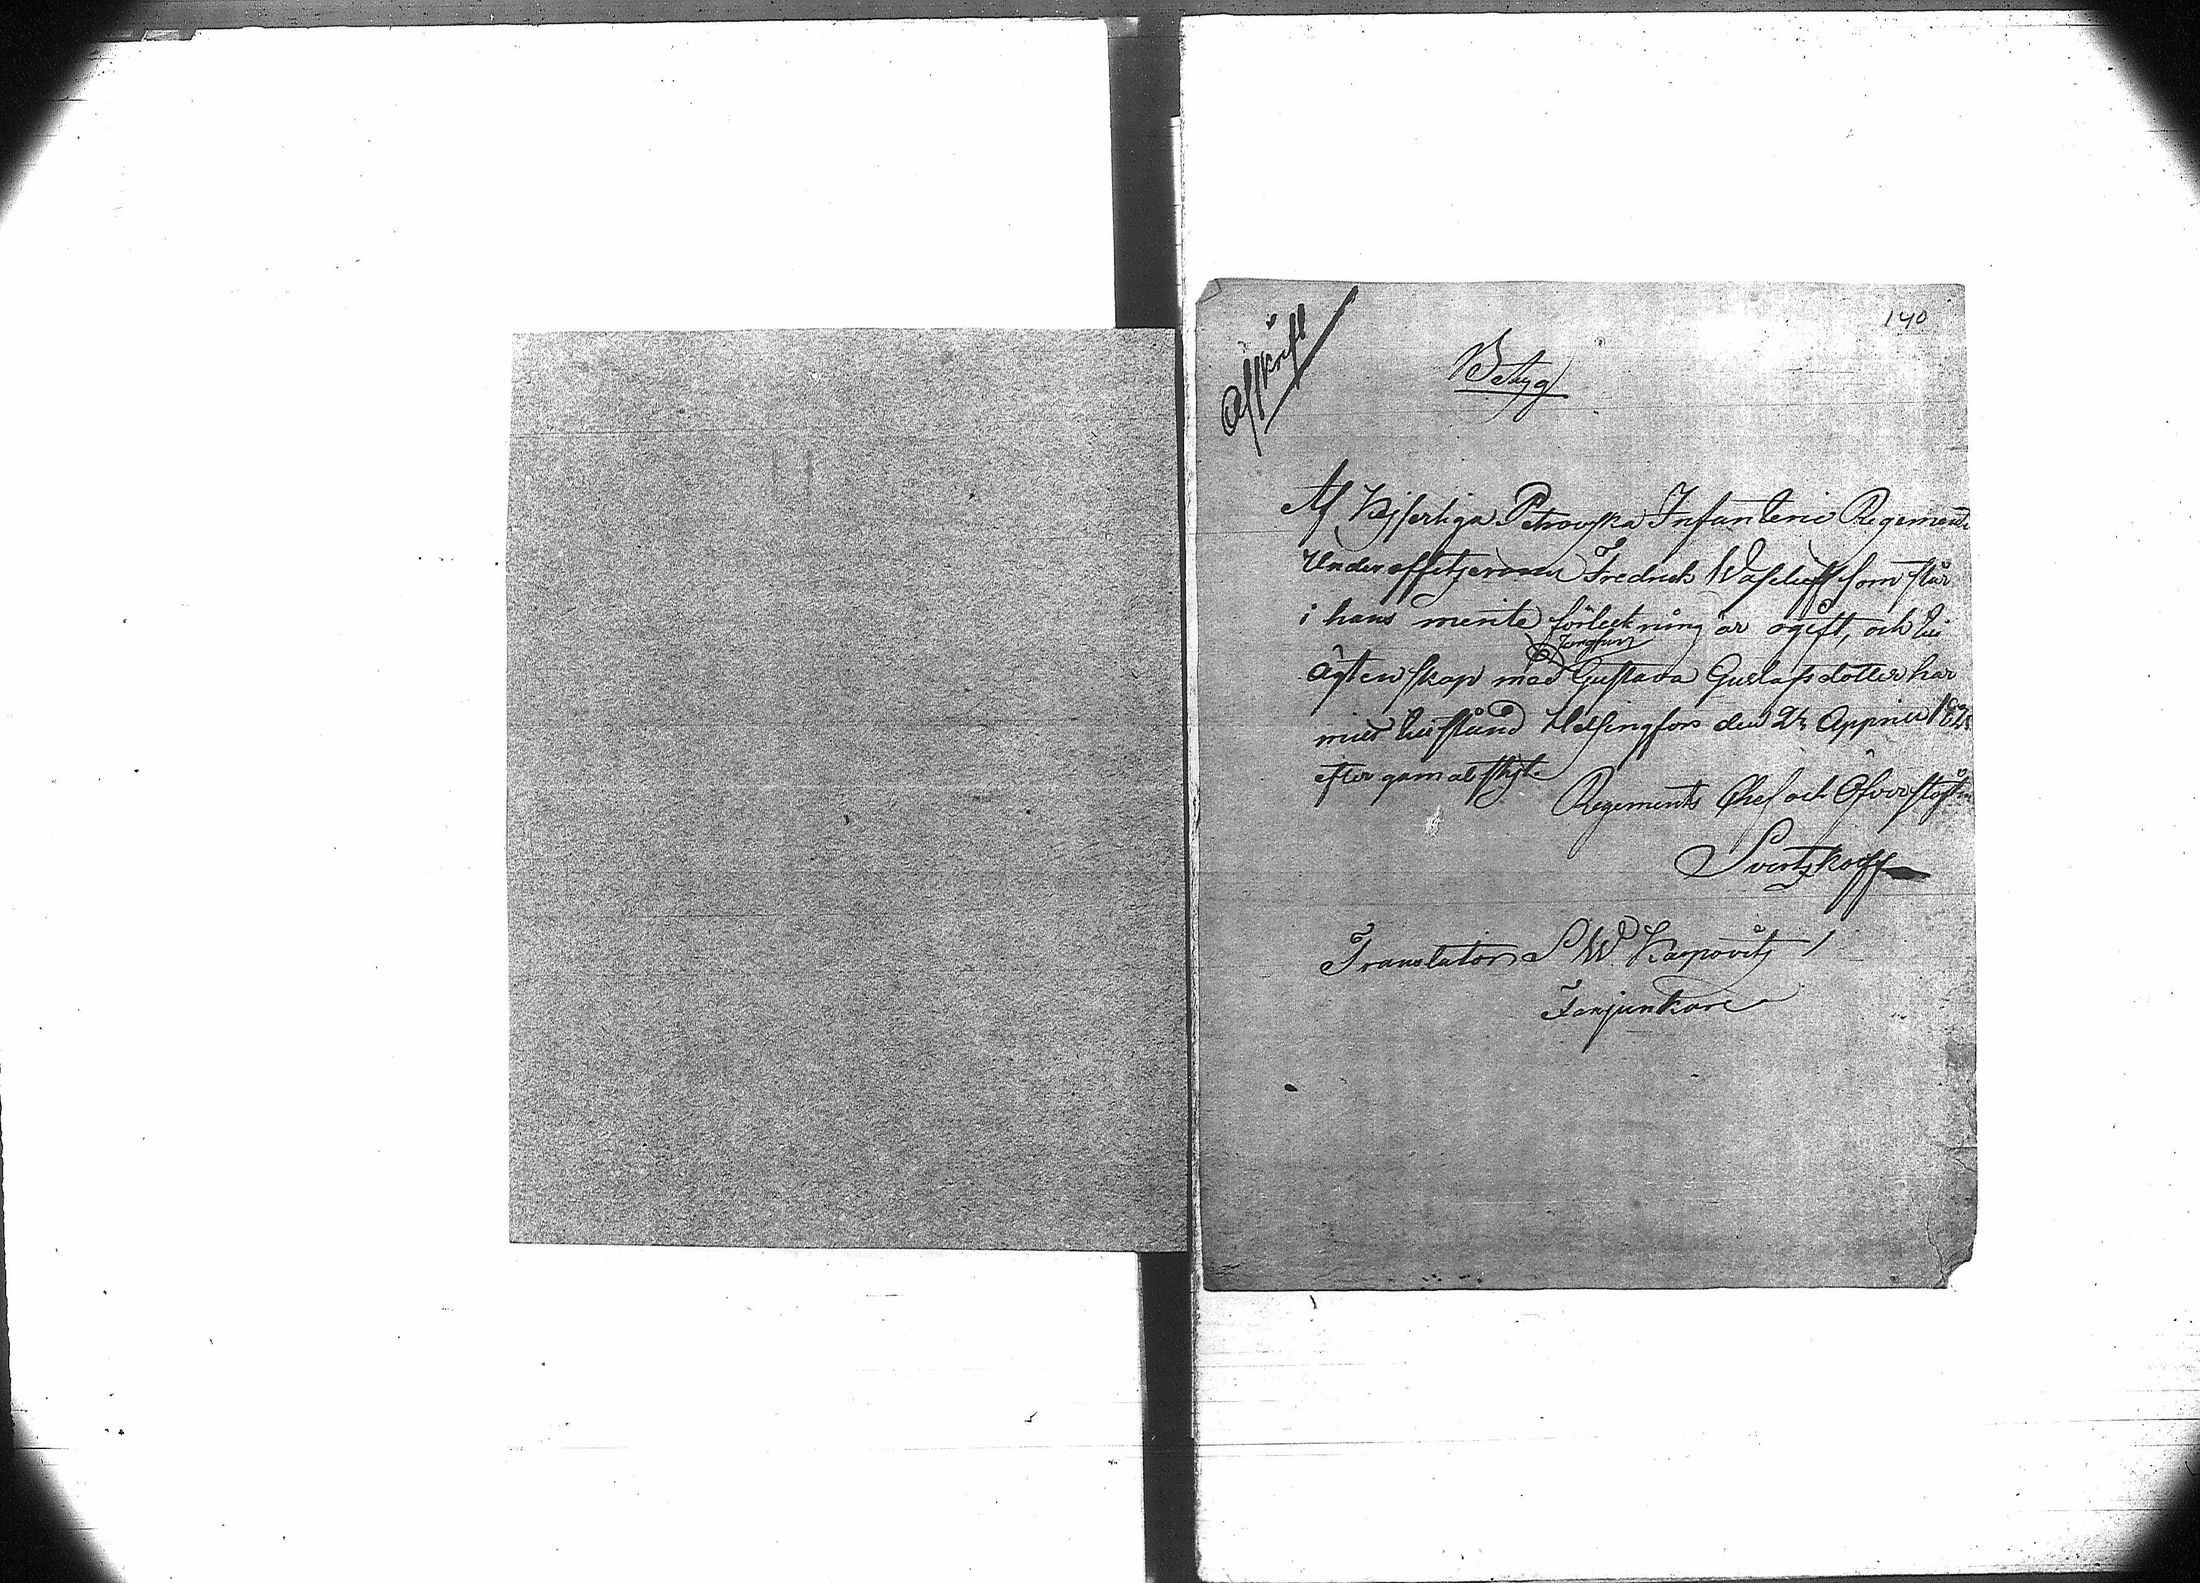 140
Afskrift
Betyg
Af Kejserliga Petrovska Infanterie Regemente
Underoffitzeraren Fredrick Wasilieff som står
i hans merite förteckning är ogift, och til
Jungfun
ägtenskap med Gustava Gustafsdotter har
mitt tillstånd Helsingfors den Appriel
efter gamal styl.
Regements Chef och Öfverstlöjtn
Svertzkoff
Translator S W Karpovitz
Fanjunkare